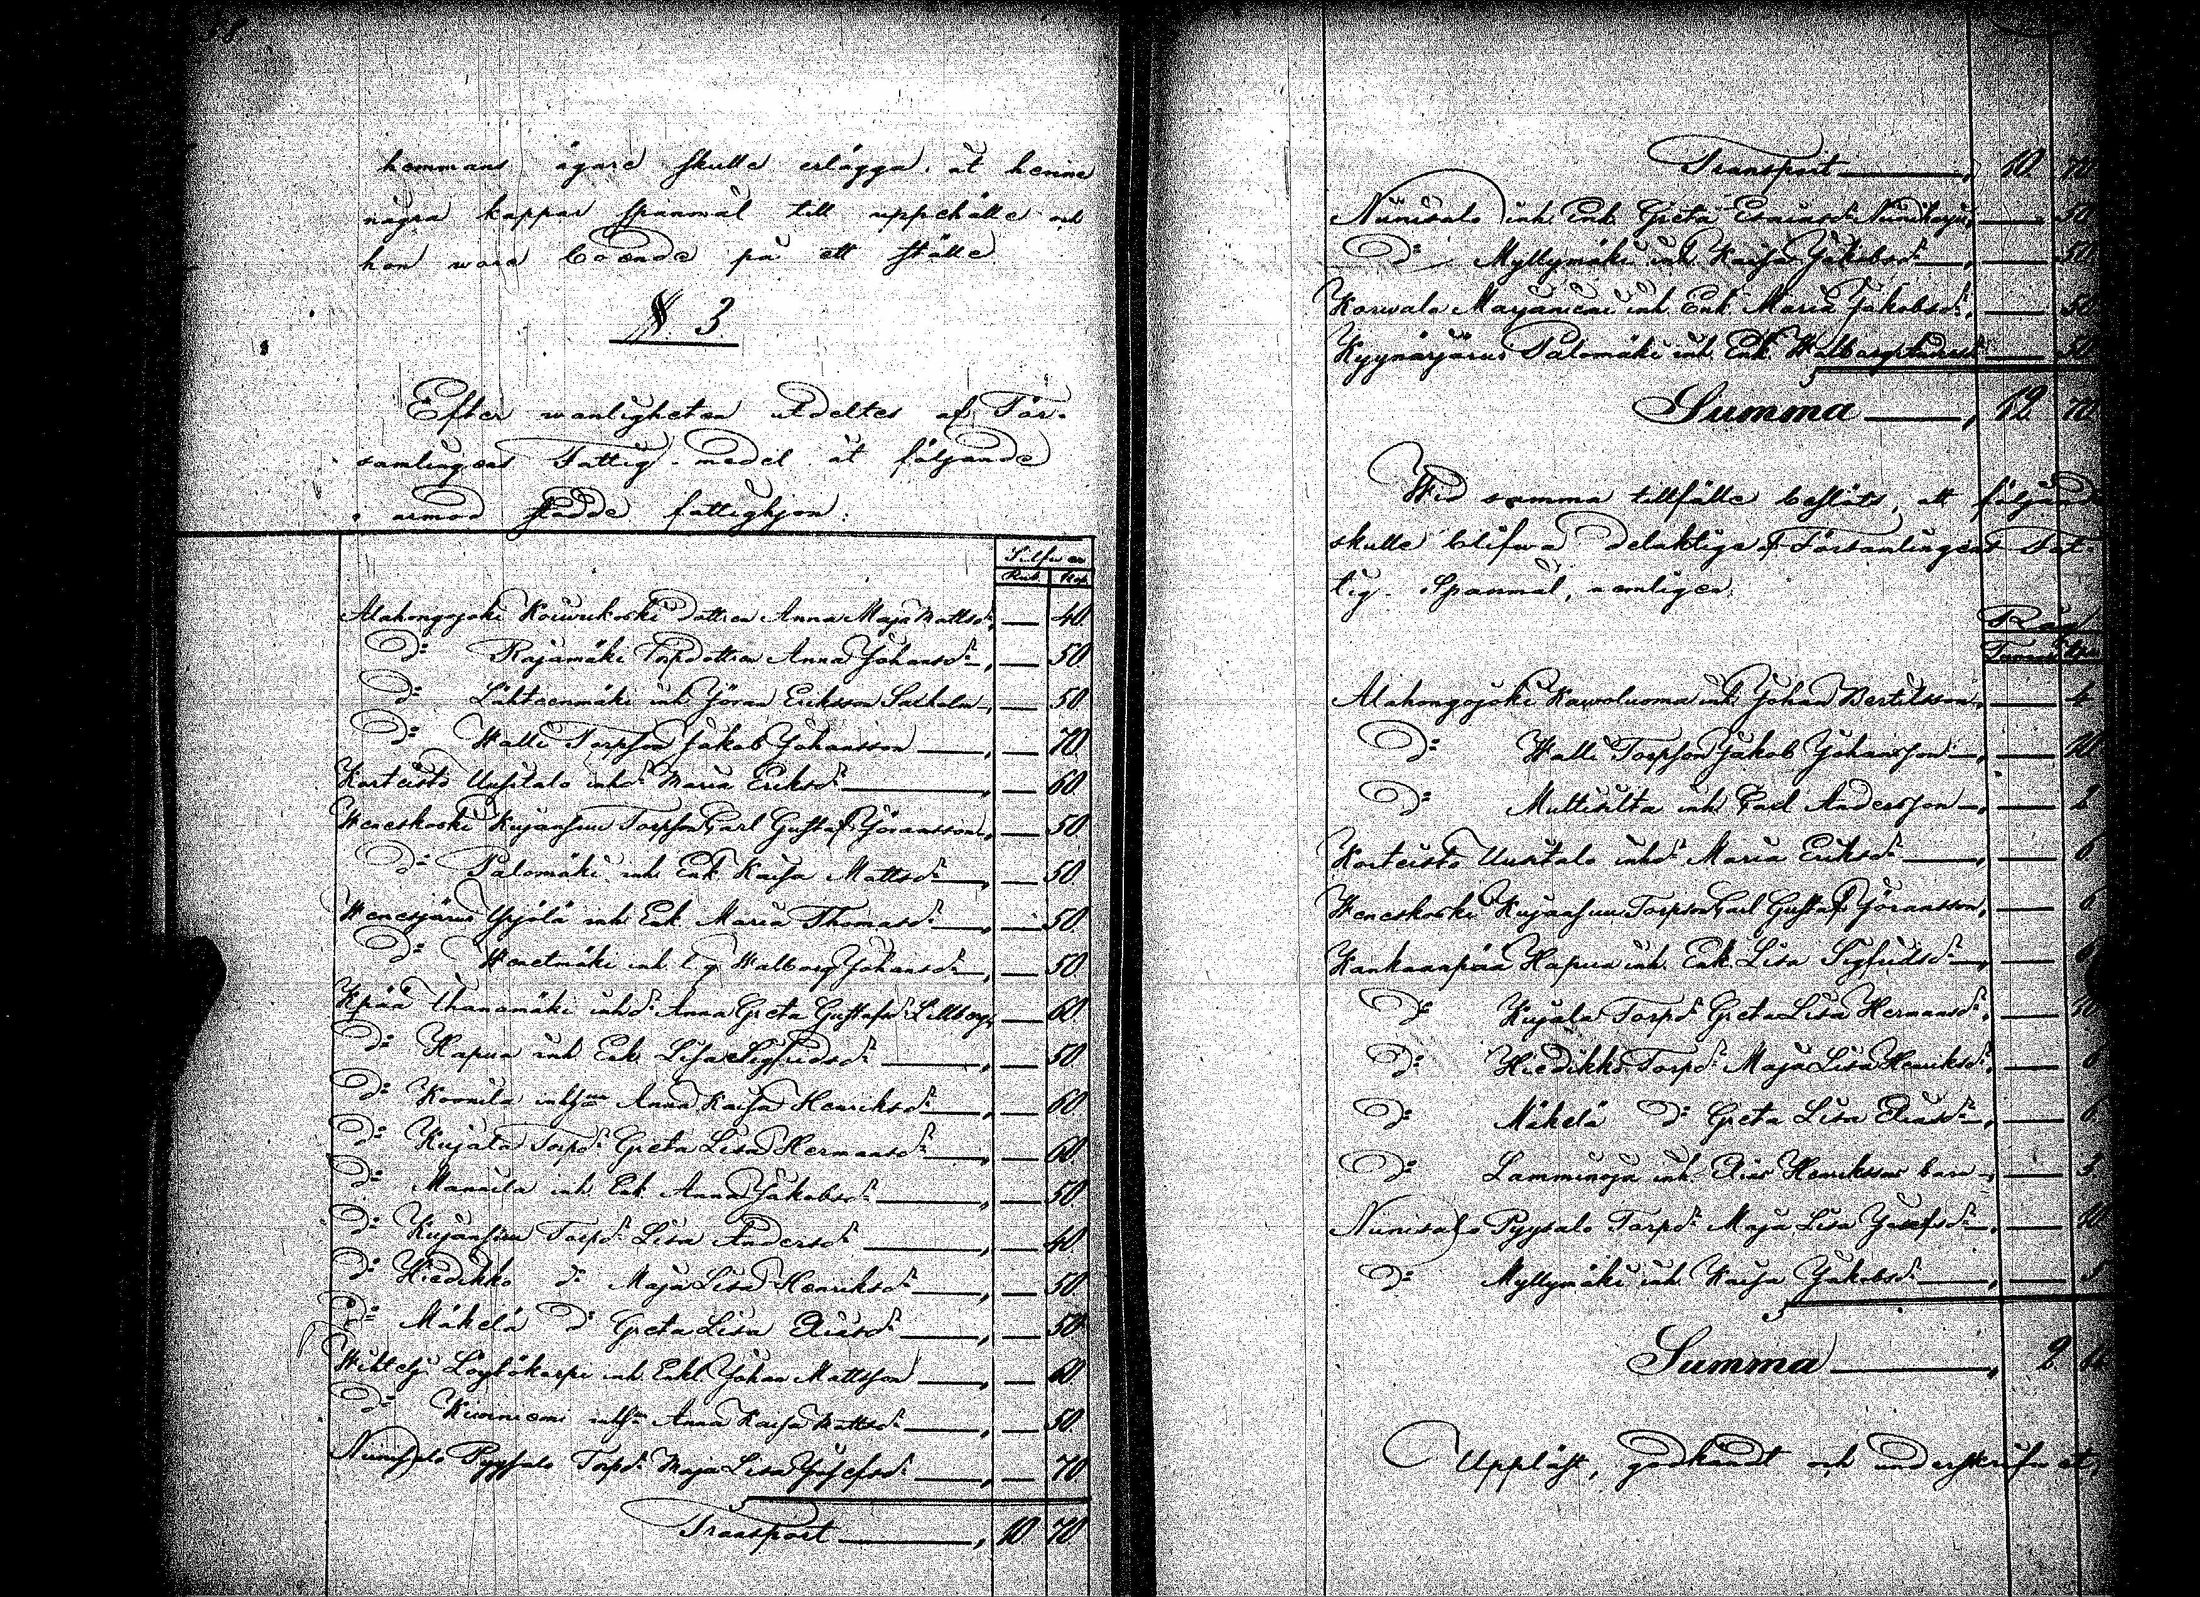 hemmans ägare skulle erlägga åt henne
några kappar spanmål till uppehälle och
hon wore boende på ett ställe
§ 3.
Efter wanligheten utdeltes af För-
samlingens Fattig-medel åt följande
i armod stadde fattighjon:
Silfwer
Rub. Kop.
Alahongojoki Koiwukoski dottren Anna Maja Mattsdr, — 40.
Do Rajamäki Torpdottren Anna Johansdr, — 50
Do Lähteenmäki inh. Jöran Eriksson, — 50
Do Walli Torpson Jakob Johansson —, — 70
Korteisto Uusitalo inhdr Maria Eriksdr —, — 60.
Weneskoski Kujansuu Torpson Carl Gustaf Jöransson, — 50
Do Palomäki inh. Enk. Kaisa Mattsdr —, — 50.
Wenesjärwi Yrjölä inh. Enk. Maria Thomasdr —, — 50
Do Wenetmäki inh. Walborg Johansdr, — 50.
Kpää Uhanamäki inhdr Anna Greta Gustafsdr Lillberg, — 60.
Do Hapua inh. Enk. Lisa Sigfridsdr —, — 50.
Do Koonila Anna Kaisa Henriksdr —, — 60
Do Kujala Torpdr Greta Lisa Hermansdr —, — 60.
Do Mannila inh. Enk. Anna Jakobsdr —, — 50.
Do Kujansuu Torpdr Lisa Andersdr —, — 40
Do Hiedikko do Maja Lisa Henriksdr —, — 50.
Do Mäkelä do Greta Lisa Eliasdr —, — 50
Löytökorpi inh. Enkl. Johan Mattsson —, — 60.
Do Kiviniemi Anna Kaisa Mattsdr —, — 50.
Niinisalo Pyysalo Torpdr Maja Lisa Josefsdr —, — 70
Transport —, 10. 70.
Transport —, 10. 70.
Niinisalo inh. Enk. Greta Esaiasdr Niiniharju, — 50
Do Myllymäki inh. Kaisa Jakobsdr —, — 50
Korwala Marjaniemi inh. Enk. Maria Jakobsdr, — 50
Kyynärjärwi Palomäki inh. Enk. Walborg — 50
Summa —, 12. 70.
Wid samma tillfälle beslöts, att följande
skulle blifwa delaktige af Församlingens Fat-
tig-Spanmål, nemligen:
Råg
Alahongojoki Karwoluoma inh. Johan Bertilsson, — 4
Do Walli Torpson Jakob Johansson —, — 10
Do Multisilta inh. Carl Andersson —, — 2
Korteisto Uusitalo inhdr Maria Eriksdr —, — 6
Weneskoski Kujansuu Torpson Carl Gustaf Jöransson, — 6
Kankaanpää Hapua inh. Enk. Lisa Sigfridsdr —, — 6
Do Kujala Torpdr Greta Lisa Hermansdr, — 10
Do Hiedikko Torpdr Maja Lisa Henriksdr, — 6
Do Mäkelä do Greta Lisa Eliasdr —, — 6.
Do Lamminoja inh. Elias Henrikssons barn —, — 3.
Niinisalo Pyysalo Torpdr Maja Lisa Josefsdr —, — 10.
Do Myllymäki inh. Kaisa Jakobsdr —, —
Summa —, 2
Uppläst, godkändt och underskrifwet,